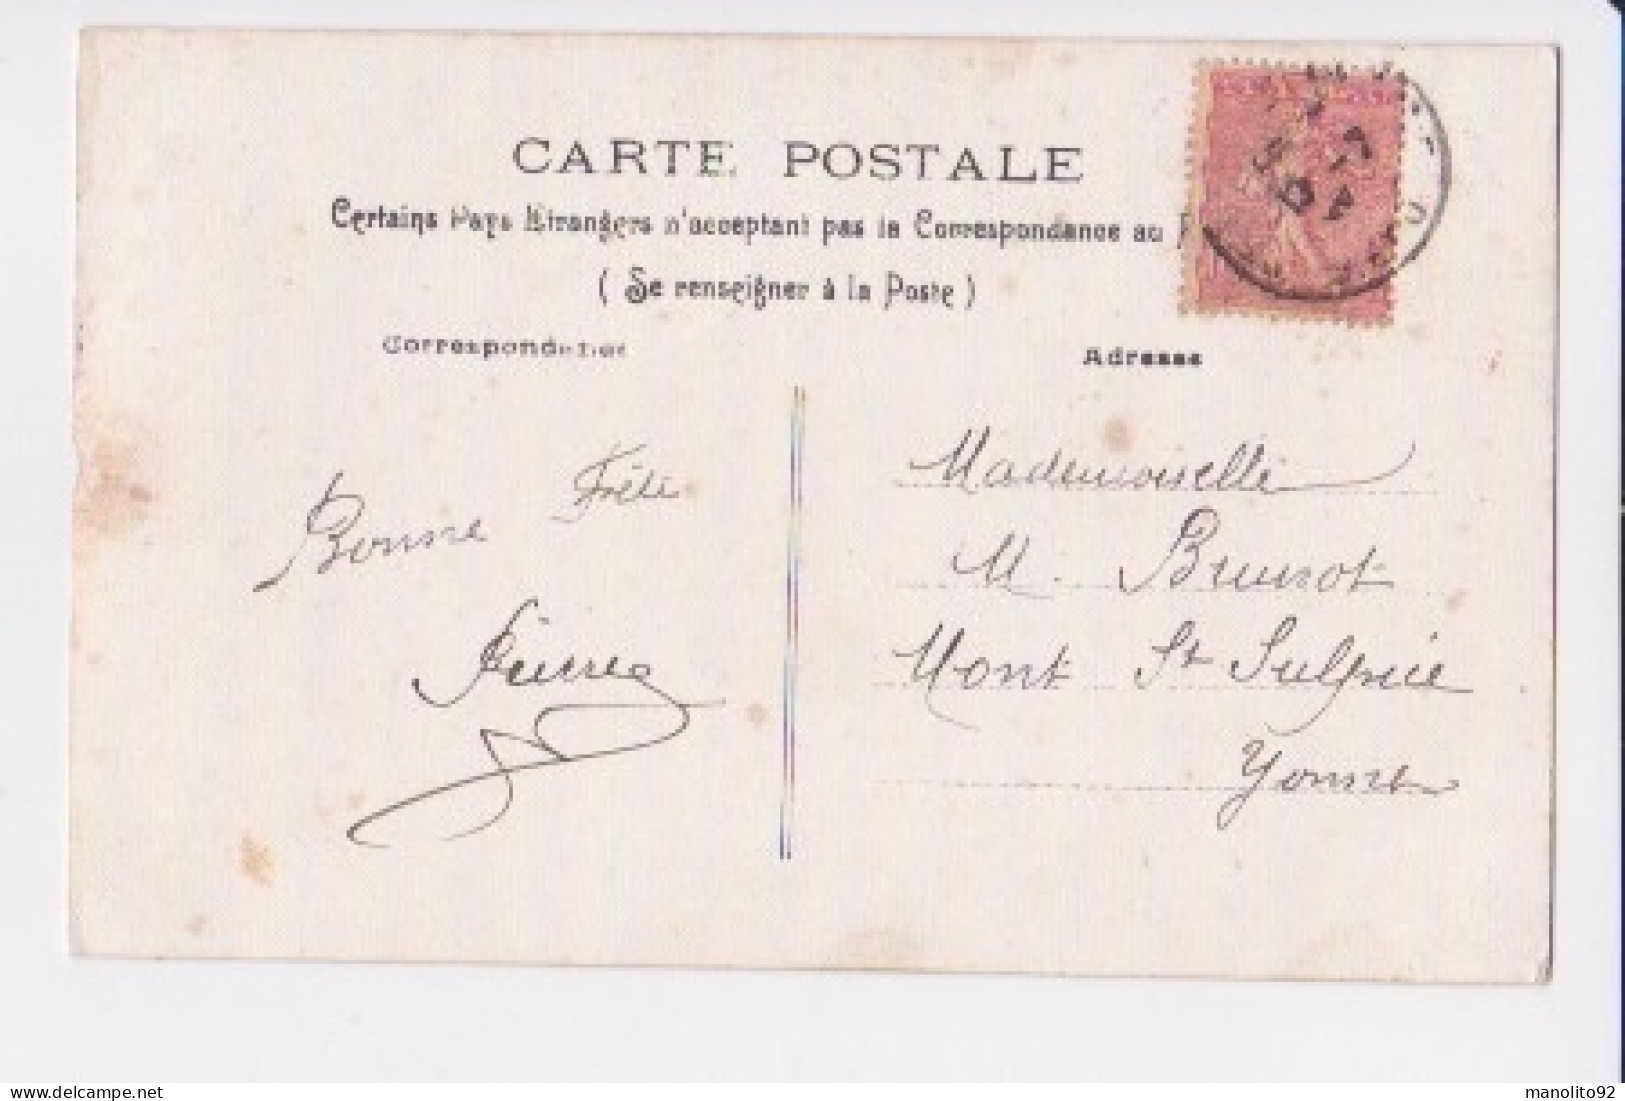 CARTE POSTALE
Certains Pays Etrangers n'acceptent pas la Correspondance au
( Se renseigner à la Poste )
Correspondance
Adresse
Bonne Fête
Pierre
Mademoiselle
M. Brunot
Mont St Sulpice
Yonne
manolito92